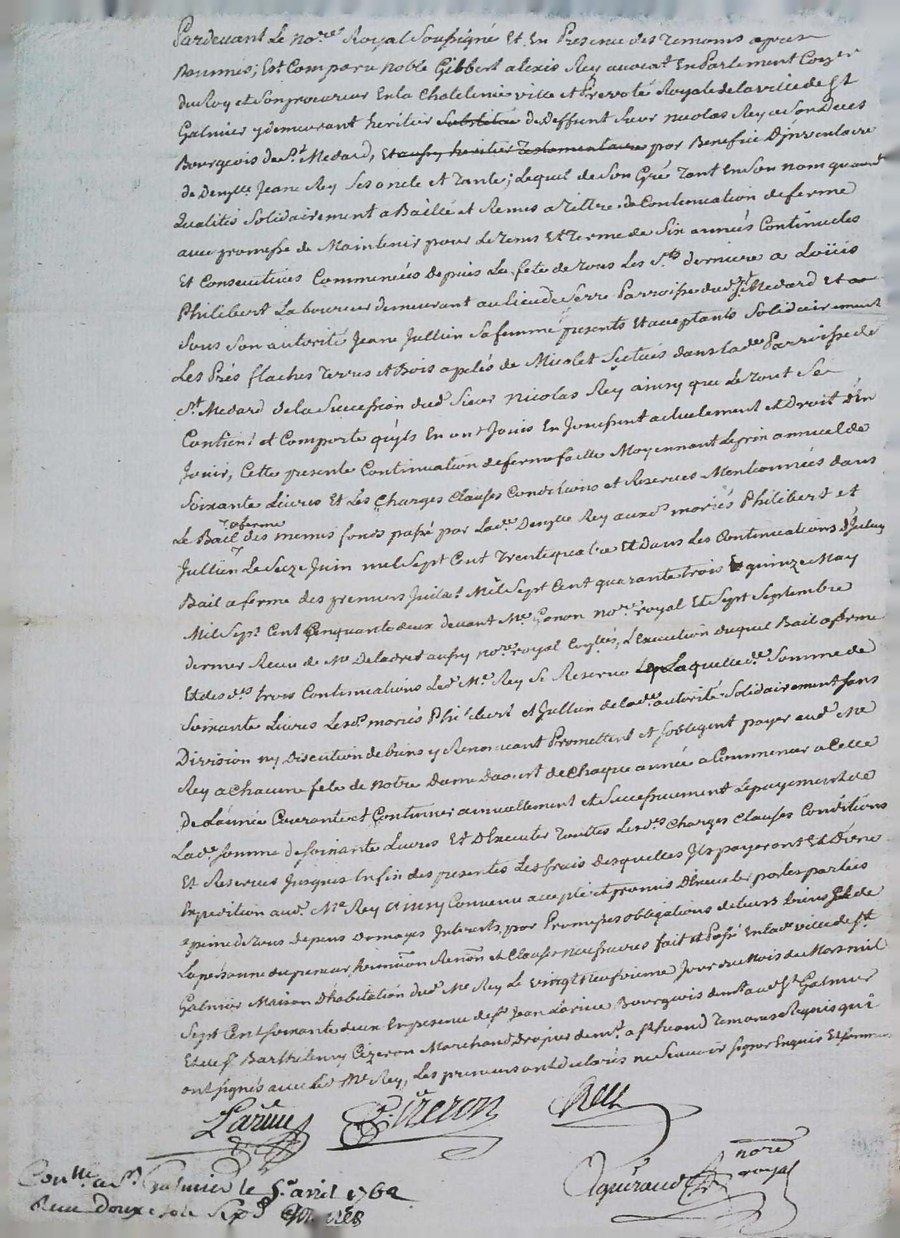 Pardevant Le no.re Royal Soussigné Et En Presence des Temoins apres
Nommés; Est Comparu noble Gilbert alexis Rey avocat En Parlement Con.er
du Roy et Son procureur En la Chatelenie ville et Prevoté Royale de la ville de St
Galmier y demeurant heritier Substitué de deffunt Sieur nicolas Rey a Son deces
Bourgeois de St Medard, Et aussy heritier Testamentaire par Benefice D'jnventaire
de Den.lle Jeane Rey Ses oncle et Tante; Lequel de Son Gré Tant En Son nom quand
Qualités Solidairement a Baillé et Remis a Tiltre de Continuation de ferme
avec promesse de Maintenir pour Le Tems Et Terme de Six années Continuelles
Et Consecutives Commencées depuis La fete de Tous Les S.ts derniere a Loüis
Philibert Laboureur demeurant au lieu de Serre Parroisse dud. St Medard Et
Sous Son autorité Jeane Jullien Sa femme presents Et acceptants Solidairement
Les Prés flaches Terres et Bois apelés de Situés dans lad.e Parroisse de
St Medard de la Succession dud. Sieur Nicolas Rey ainsy que Le Tout Se
Contient et Comporte qu'jls En ont Jouis En Jouissent actuelement et Droit d'En
Jouir, Cette presente Continuation de ferme faitte Moyennant Le prix annuel de
Soixante Livres Et Les Charges Clauses Conditions et Reserves Mentionnées dans
Le Bail a ferme des memes fonds passé par Lad.e Den.lle Rey auxd. mariés Philibert et
Jullien Le Seize Juin mil Sept Cent Trente quatre Et Dans Les Continuations
Bail a ferme des premiers Juillet Mil Sept Cent quarante Trois quinze May
Mil Sept Cent Cinquante deux devant Me Gonon no.re royal Et Sept Septembre
dernier Receu de Me Deladret aussy no.re royal L'Execution duquel Bail a ferme
Et des d.es trois Continuations Led. Me Rey Se Reserve Laquelle d.e Somme de
Soixante Livres Lesd. mariés Philibert et Jullien de lad.e autorité Solidairement Sans
Division ny Discution de biens y Renonçant Promettent et S'obligent payer aud. Me
Rey a Chacune fete de Notre Dame Daoust de Chaque année a Commencer a Celle
De L'année Courante et Continuer annuellement et Successivement Le payement de
Lad.e Somme de Soixante Livres Et D'Executer Toutes Lesd.es Charges Clauses Conditions
Et Reserves Jusques En fin des presentes Les frais Desquelles Jls payeront Et D'une
Expedition aud. Me Rey ainsy Convenu accepté et promis D'Executer par les parties
a peine de Tous Depens Domages Interets, par Promesses obligations de leurs biens de
La personne du preneur, Renon et Clauses fait et Passé En lad. ville de St
Galmier Maison D'habitation dud. Me Rey Le vingt Neufvieme Jour du Mois de Mars mil
Sept Cent Soixante deux En presence de Sr Jean Larive Bourgeois St Galmier
Et de Sr Barthelemy Cizeron Marchand Drapier Temoins Requis qui
ont Signés avec Led. Me Rey, Les preneurs ont declarés ne Sçavoir Signer Enquis Et Sommés
Larive Cizeron Rey
Aguiraud no.re royal
Con.lle a St Galmier le 5.e avril 1762
Receu douze sols